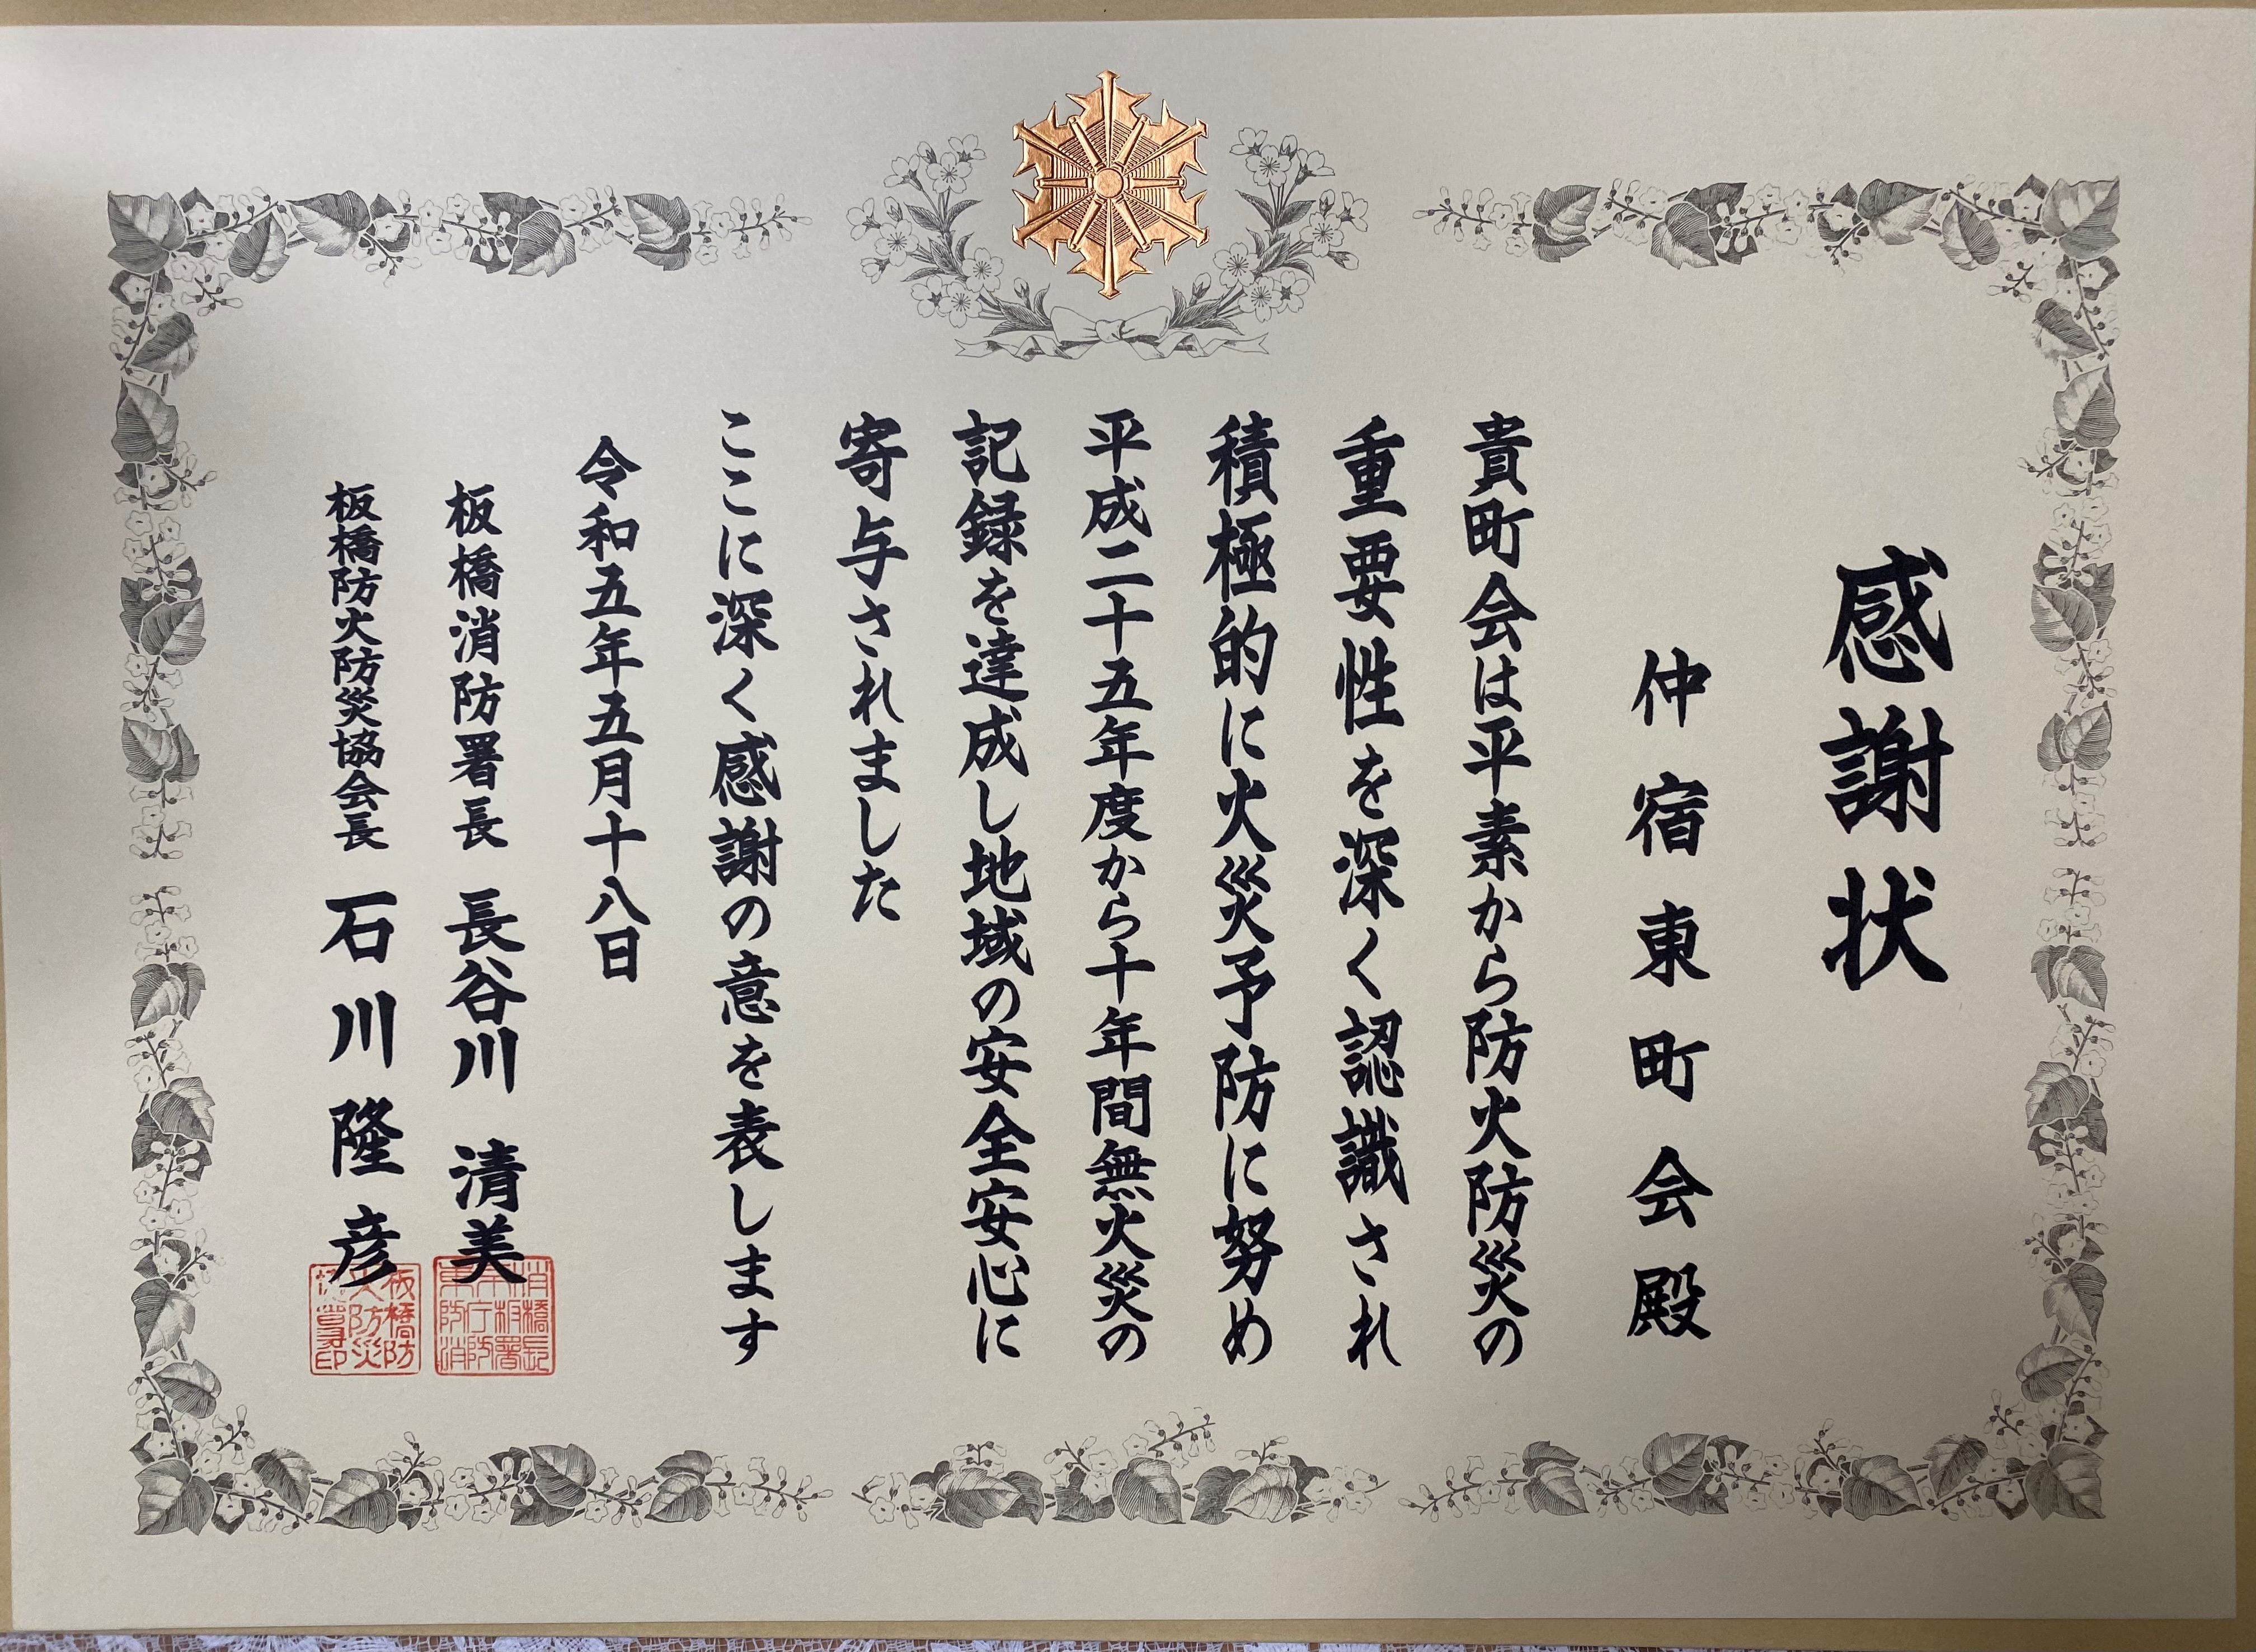 感謝状
仲宿東町会殿
貴町会は平素から防火防災の
重要性を深く認識され
積極的に火災予防に努め
平成二十五年度から十年間無火災の
記録を達成し地域の安全安心に
寄与されました
ここに深く感謝の意を表します
令和五年五月十八日
板橋消防署長 長谷川 清美
板橋防火防災協会長 石川隆彦